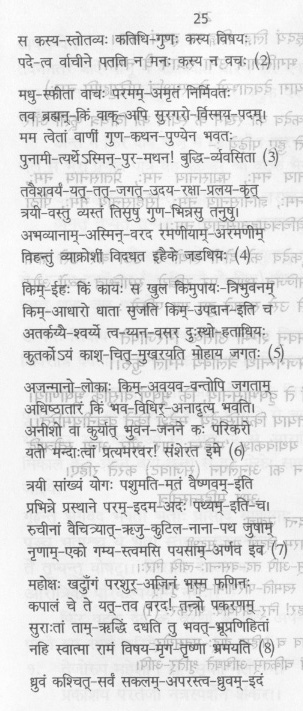 25
स कस्य-स्तोतव्यः कतिथि-गुणः कस्य विषयः
पदे-त्व र्वाचीने पतति न मनः कस्य न वचः (2)
मधु-स्फीता वाचः परमम्-अमृतं निर्मिवतः
तव ब्रह्मन्-किं वाक्-अपि सुरगरो र्विस्मय-पदम्।
मम त्वेतां वाणीं गुण-कथन-पुण्येन भवतः
पुनामी-त्यर्थेऽस्मिन्-पुर-मथन! बुद्धि-र्व्यवसिता (3)
तवैशवर्यं-यत्-तत्-जगत्-उदय-रक्षा-प्रलय-कृत्
त्रयी-वस्तु व्यस्तं तिसृषु गुण-भिन्नसु तनुषु।
अभव्यानाम्-अस्मिन्-वरद रमणीयाम्-अरमणीम्
विहन्तुं व्याक्रोशीं विदधत इहैके जडधियः (4)
किम्-ईहः किं कायः स खुल किमुपायः-त्रिभुवनम्
किम्-आधारो धाता सृजति किम्-उपदान-इति च
अतर्क्यै-श्वर्य्ये त्व-य्यन-वसर दुःस्थो-हताधियः
कुतर्कोऽयं काश्-चित्-मुखरयति मोहाय जगतः (5)
अजन्मानो-लोकाः किम्-अवयव-वन्तोपि जगताम्
अधिष्ठातारं किं भव-विधिर्-अनादृत्य भवति।
अनीशो वा कुर्यात् भुवन-जनने कः परिकरो
यतो मन्दाःत्वां प्रत्यमरवर! संशेरत इमे (6)
त्रयी सांख्यं योगः पशुमति-मतं वैष्णवम्-इति
प्रभिन्ने प्रस्थाने परम्-इदम-अदः पथ्यम्-इति-च।
रुचीनां वैचित्र्यात्-ऋजु-कुटिल-नाना-पथ जुषाम्
नृणाम्-एको गम्य-स्त्वमसि पयसाम्-अर्णव इव (7)
महोक्षः खट्वाँगं परशुर्-अजिनं भस्म फणिनः
कपालं चे ते यत्-तव वरदा! तन्त्रो पकरणाम्
सुराःतां ताम्-ऋद्धिं दधति तु भवत्-भ्रूप्रणिहितां
नहि स्वात्मा रामं विषय-मृग-तृष्णा भ्रमयति (8)
ध्रुवं कश्चित्-सर्वं सकलमु-अपरस्त्व-ध्रुवम्-इदं